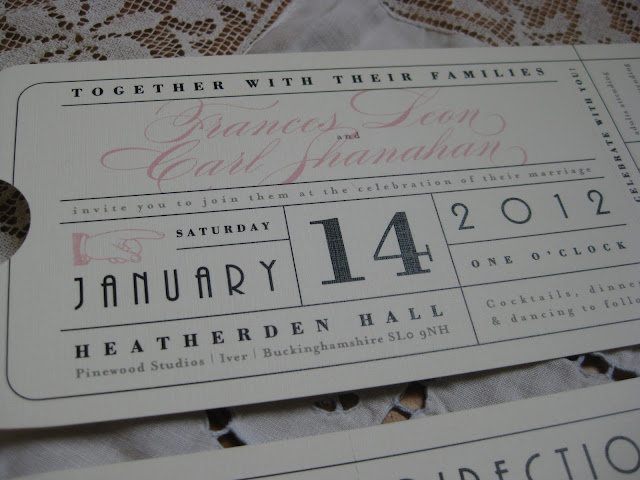 TOGETHER WITH THEIR FAMILIES
Frances Leon
and
Carl Shanahan
invite you to join them at the celebration of their marriage
SATURDAY
JANUARY
14
2012
ONE O'CLOCK
HEATHERDEN HALL
Pinewood Studios | Iver | Buckinghamshire SL0 9NH
Cocktails, dinner
& dancing to follow
CELEBRATE WITH YOU!
DIRECTIO